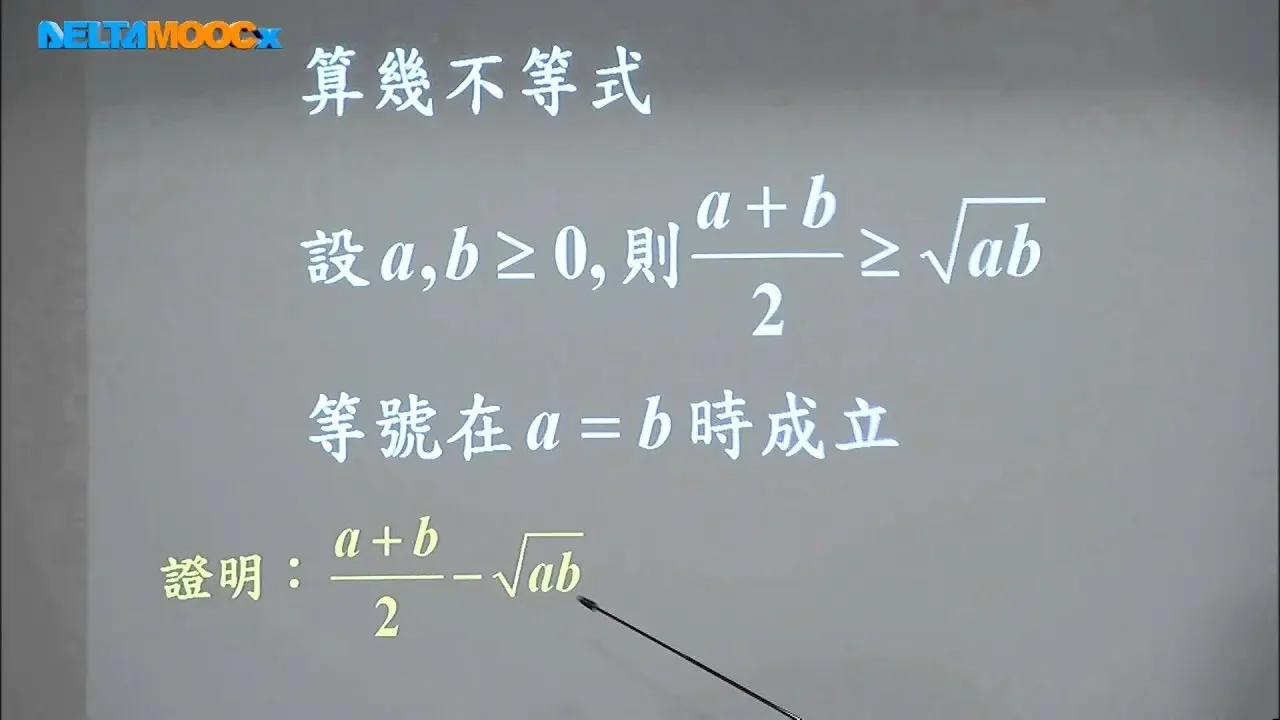 DELTAMOOCx
算幾不等式
設 a,b ≥ 0, 則 \frac{a+b}{2} ≥ \sqrt{ab}
等號在 a = b 時成立
證明：\frac{a+b}{2} − \sqrt{ab}